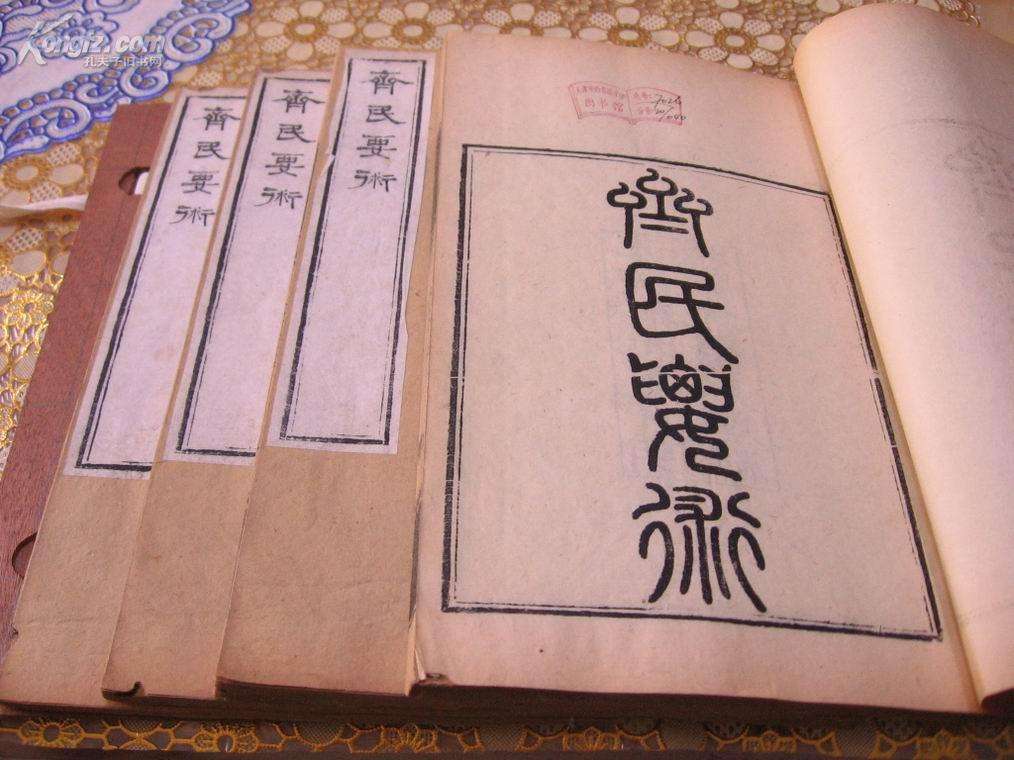 Kongfz.com
孔夫子旧书网
齊民要術
齊民要術
齊民要術
齊民要術
图书馆